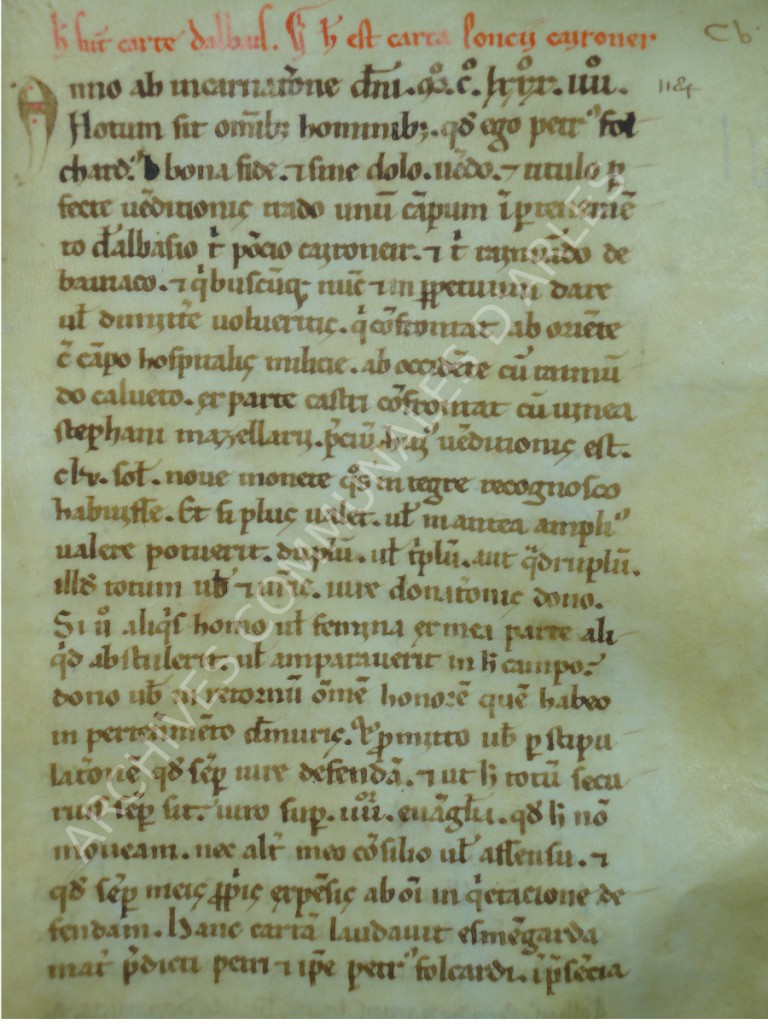 h̄ sūt carte dalbaus. h̄ est carta Poncij cayroner Cb
Anno ab incarnat̄one dn̄i. mº. cº. lxxxº. iiijº. 1184
Notum sit om̄ibꝫ hominibꝫ. qd̄ ego petrꝰ fol
chardꝰ bona fide. ⁊ sine dolo. uēdo. ⁊ titulo p̱
fecte uēditionis trado unū cāpum ī p̱tenemē
to d̄albasio t̄ pōcio cayroneir. ⁊ t̄ raymūdo de
⁊ qibuscūqꝫ nūc ⁊ in ꝑpetuum dare
ul̄ dimitt̄e uolueritis. qi cōfrontat ab oriēte
c̄ cāpo hospitalis milicie. ab occidēte cū raimū
do calueto. ex parte castri cōfrontat cū uinea
stephani mazellarij. p̄ciū huiꝰ uēditionis est.
clv. sol̄. noue monete qºs integre recognosco
habuisse. Et si plus ualet. ul̄ in antea ampliꝰ
ualere potuerit. duplū. ul̄ tiplū. aut qadruplū.
illd̄ totum ub̄ ⁊ ur̄is. iure donat̄onis dono.
Si uº aliqis homo ul̄ femina ex mea parte ali
qid abstulerit. ul̄ amparauerit in h̄ campo.
dono ub̄ in retornū ōmē honorē quē habeo
in pertenimēto d̄muris. ⁊ ꝓmitto ub̄ p̱ stipu
lat̄onē qd̄ semp̱ iure defendā. ⁊ ut h̄ totū secu
rus semp̱ sit. iuro sup̱. iiijor. euāgl̄ia. qd̄ h̄ nō
moueam. nec alt̄ meo cōsilio ul̄ assensu. ⁊
qd̄ semp̱ meis ꝓpis expēsis ab oī inqietacione de
fendam. Hanc cartā laudauit esmēgarda
mat̄ p̄dicti petri ⁊ ip̄e petrꝰ folcardi. ī p̄sēcia
ARCHIVES COMMUNALES D'ARLES